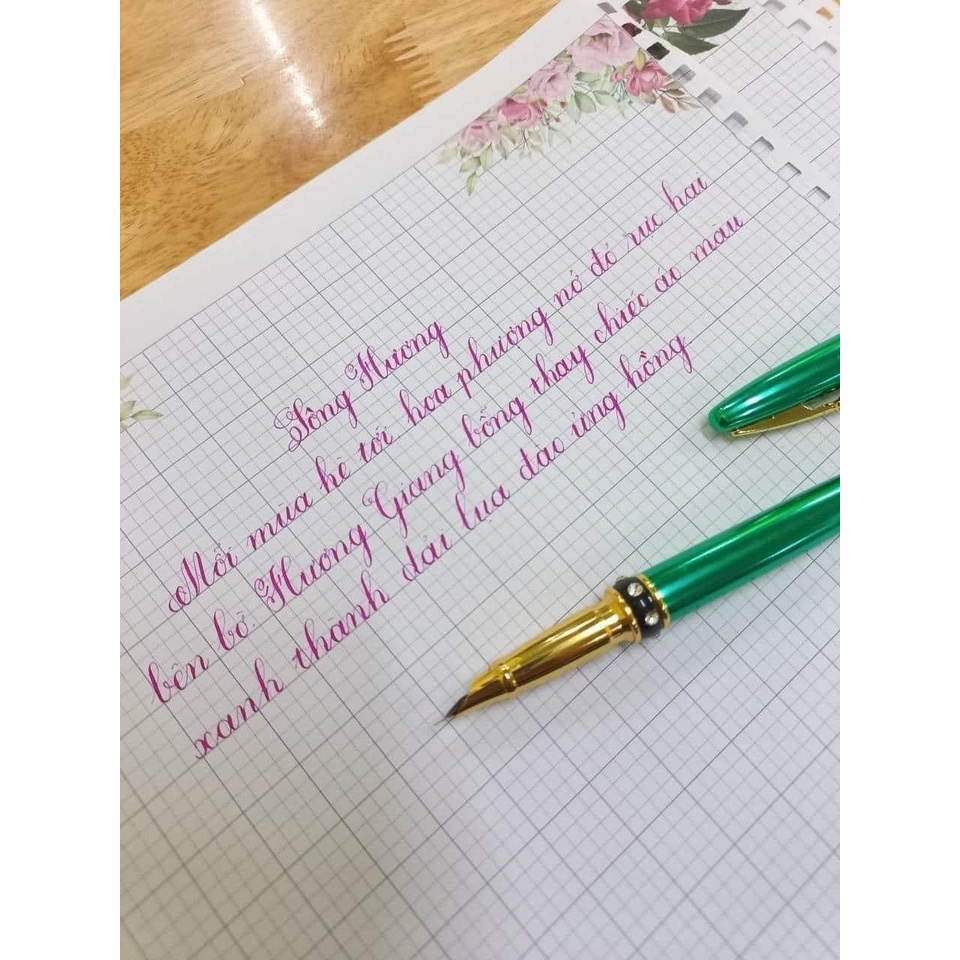 Sông Hương
Mỗi mùa hè tới hoa phượng nở đỏ rực hai
bên bờ. Hương Giang bỗng thay chiếc áo màu
xanh thành dải lụa đào ửng hồng